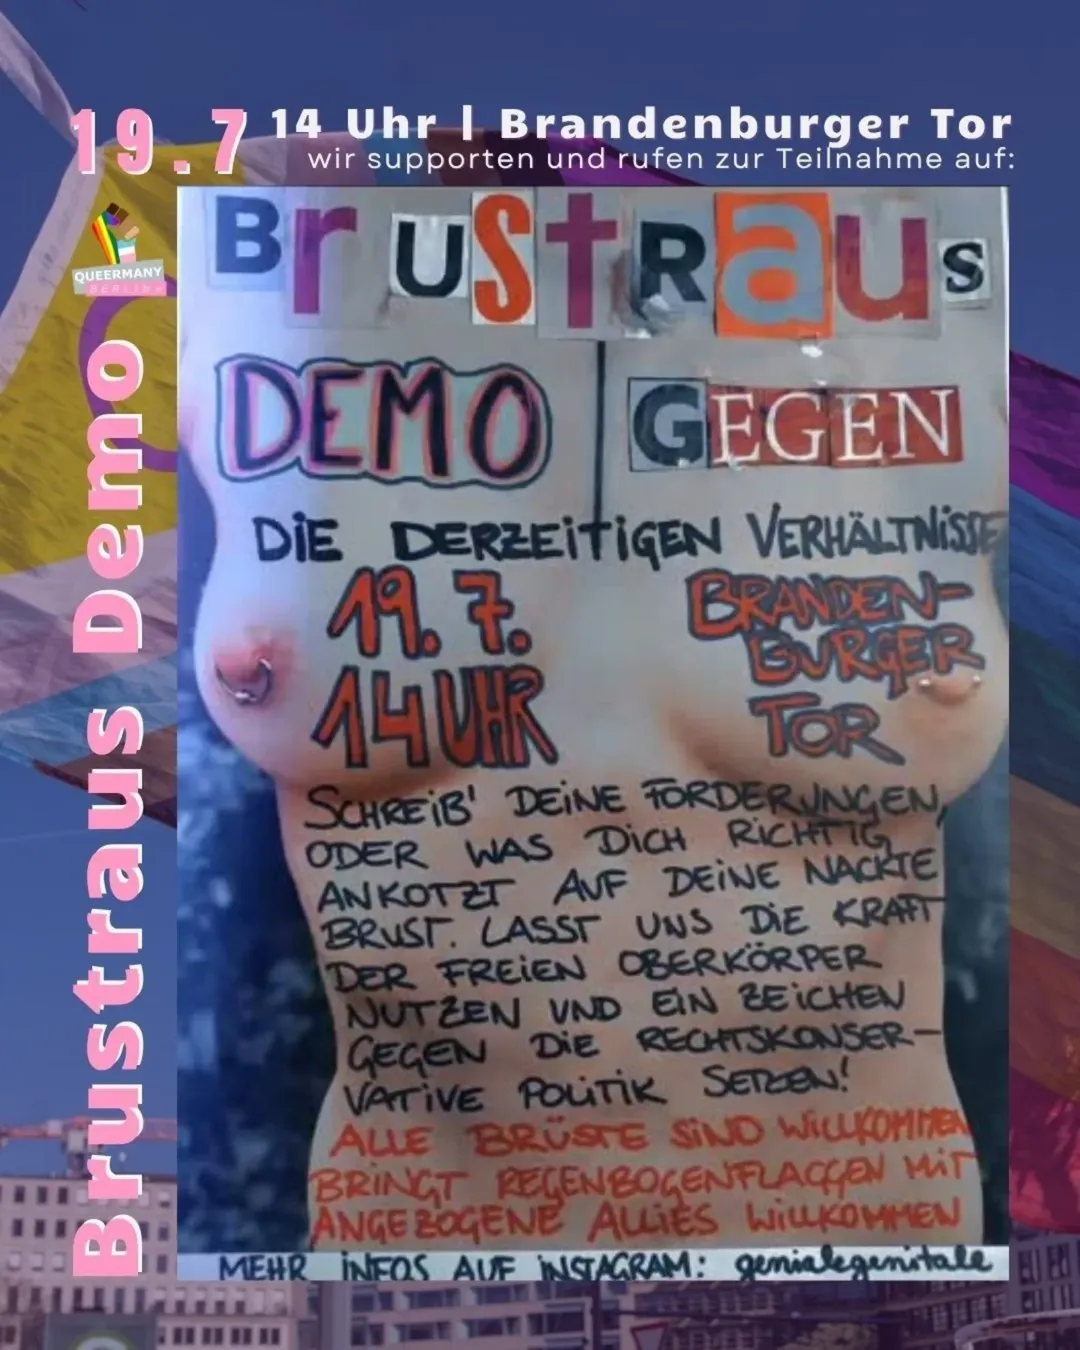 19.7
14 Uhr | Brandenburger Tor
wir supporten und rufen zur Teilnahme auf:
QUEERMANY
BERLIN
Brustraus Demo
BrUStRauS
DEMO | GEGEN
DIE DERZEITIGEN VERHÄLTNISSE
19.7.
14 UHR
BRANDEN-
BURGER
TOR
SCHREIB' DEINE FORDERUNGEN,
ODER WAS DICH RICHTIG
ANKOTZT AUF DEINE NACKTE
BRUST. LASST UNS DIE KRAFT
DER FREIEN OBERKÖRPER
NUTZEN UND EIN ZEICHEN
GEGEN DIE RECHTSKONSER-
VATIVE POLITIK SETZEN!
ALLE BRÜSTE SIND WILLKOMMEN
BRINGT REGENBOGENFLAGGEN MIT
ANGEZOGENE ALLIES WILLKOMMEN
MEHR INFOS AUF INSTAGRAM: genialegenitale